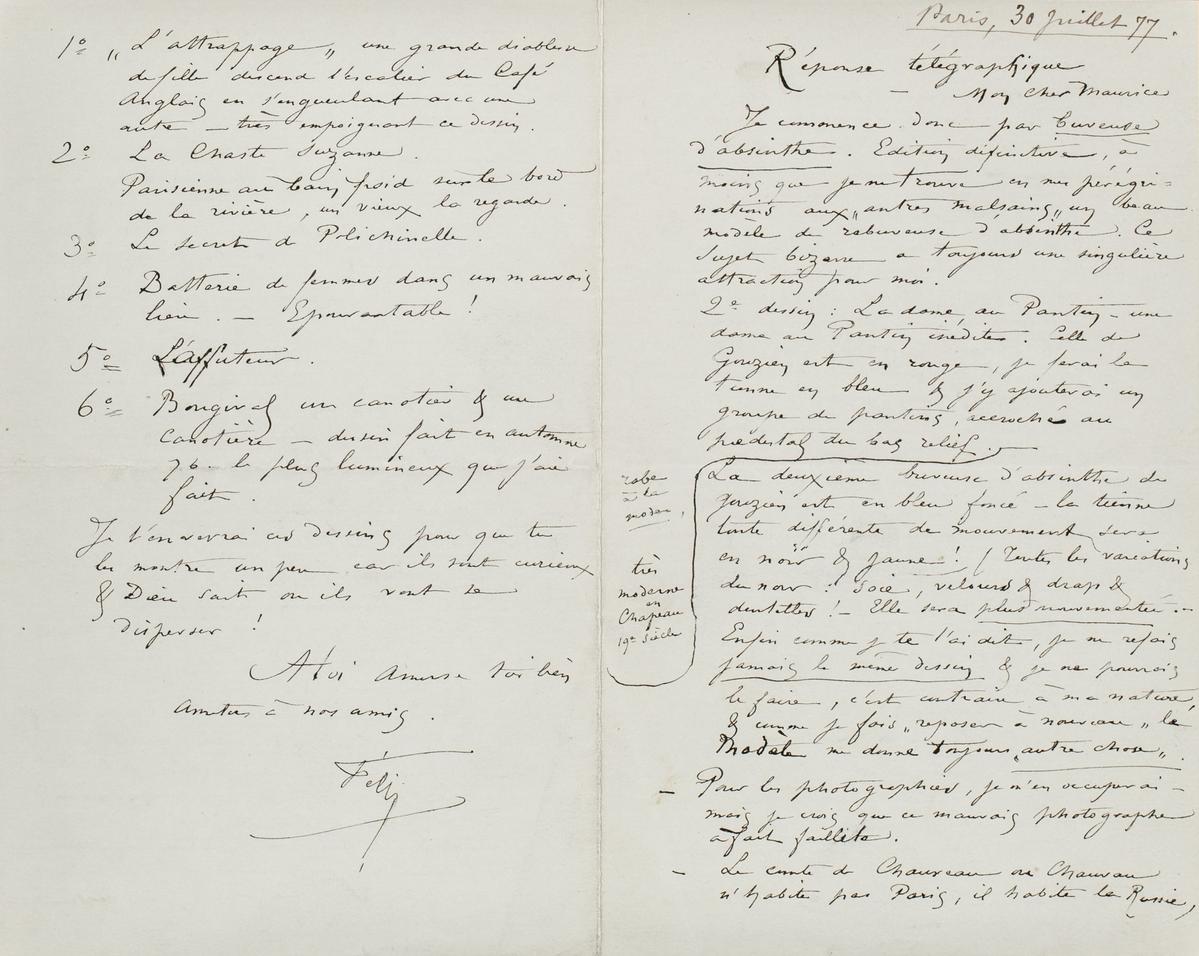 Paris, 30 Juillet 77.
Réponse télégraphique
— Mon cher Maurice
Je commence donc par buveuse
d'absinthe. Edition définitive, à
moins que je ne trouve en mes pérégri-
nations aux „antres malsains„ un beau
modèle de rebuveuse d'absinthe. Ce
sujet bizarre a toujours une singulière
attraction pour moi.
2e dessin : La dame au Pantin - une
dame au Pantin inédite. Celle de
Gouzien est en rouge, je ferai la
tienne en bleu & j'y ajouterai un
groupe de pantins, accroché au
piédestal du bas relief.
La deuxième buveuse d'absinthe de
gouzien est en bleu foncé - la tienne
toute différente de mouvement sera
en noir & jaune ! / Toutes les variations
du noir : Soie, velours & drap &
dentelles ! - Elle sera plus mouvementée. -
robe
à la
moder,
très
moderne
en
Chapeau
19e siècle
Enfin comme je te l'ai dit, je ne refais
jamais le même dessin & je ne pourrais
le faire, c'est contraire à ma nature,
& comme je fais „reposer à nouveau„ le
modèle me donne toujours „autre chose„.
— Pour les photographies, je m'en occuperai -
mais je crois que ce mauvais photographe
a fait faillite.
— Le comte de Chauveau ou Chauvau
n'habite pas Paris, il habite la Russie,
1o „L'attrappage„ une grande diablesse
de fille descend l'escalier du Café
Anglais en s'engueulant avec une
autre — très empoignant ce dessin.
2o La Chaste Suzanne.
Parisienne au bain froid sur le bord
de la rivière, un vieux la regarde.
3o Le secret de Polichinelle.
4o Batterie de femmes dans un mauvais
lieu. — Epouvantable !
5o L'affuteur.
6o Bougival un canotier & une
canotière — dessin fait en automne
76. le plus lumineux que j'aie
fait.
Je t'enverrai ces dessins pour que tu
les montre un peu car ils sont curieux
& Dieu sait où ils vont se
disperser !
A toi amuse toi bien
amitiés à nos amis.
Fély